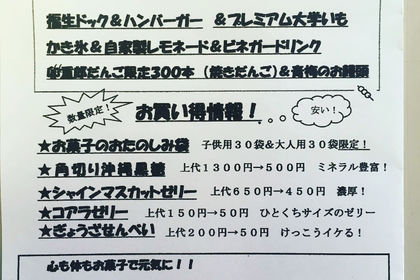 福生ドック＆ハンバーガー　＆プレミアム大学いも
かき氷＆自家製レモネード＆ビネガードリンク
重郎だんご限定300本（焼きだんご）＆青梅のお饅頭
数量限定！
お買い得情報！
安い！
★お菓子のおたのしみ袋　子供用30袋＆大人用30袋限定！
★角切り沖縄黒糖　上代1300円→500円　ミネラル豊富！
★シャインマスカットゼリー　上代650円→450円　濃厚！
★コアラゼリー　上代150円→50円　ひとくちサイズのゼリー
★ぎょうざせんべい　上代200円→50円　けっこうイケる！
心も体もお菓子で元気に！！